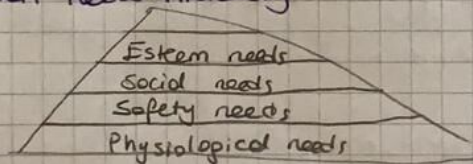 Esteem needs
Social needs
Safety needs
Physiological needs